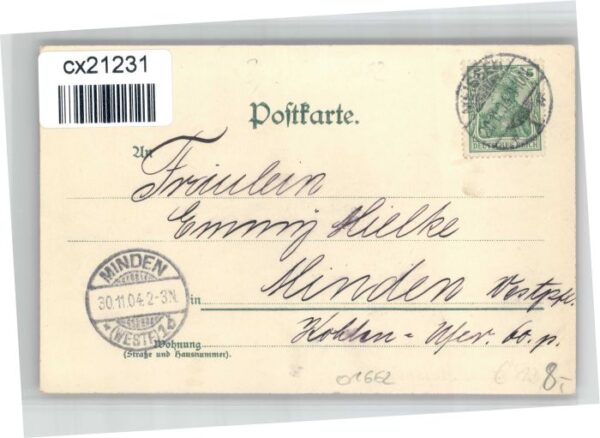 cx21231
Postkarte.
5 5
DEUTSCHES REICH
An
Fräulein
Emmy Hielke
MINDEN
30.11.04. 2-3N.
* (WESTF.) 1b
in Minden Westpf.
Kohlen = Ufer 60. p.
Wohnung
(Straße und Hausnummer).
01662
8,-